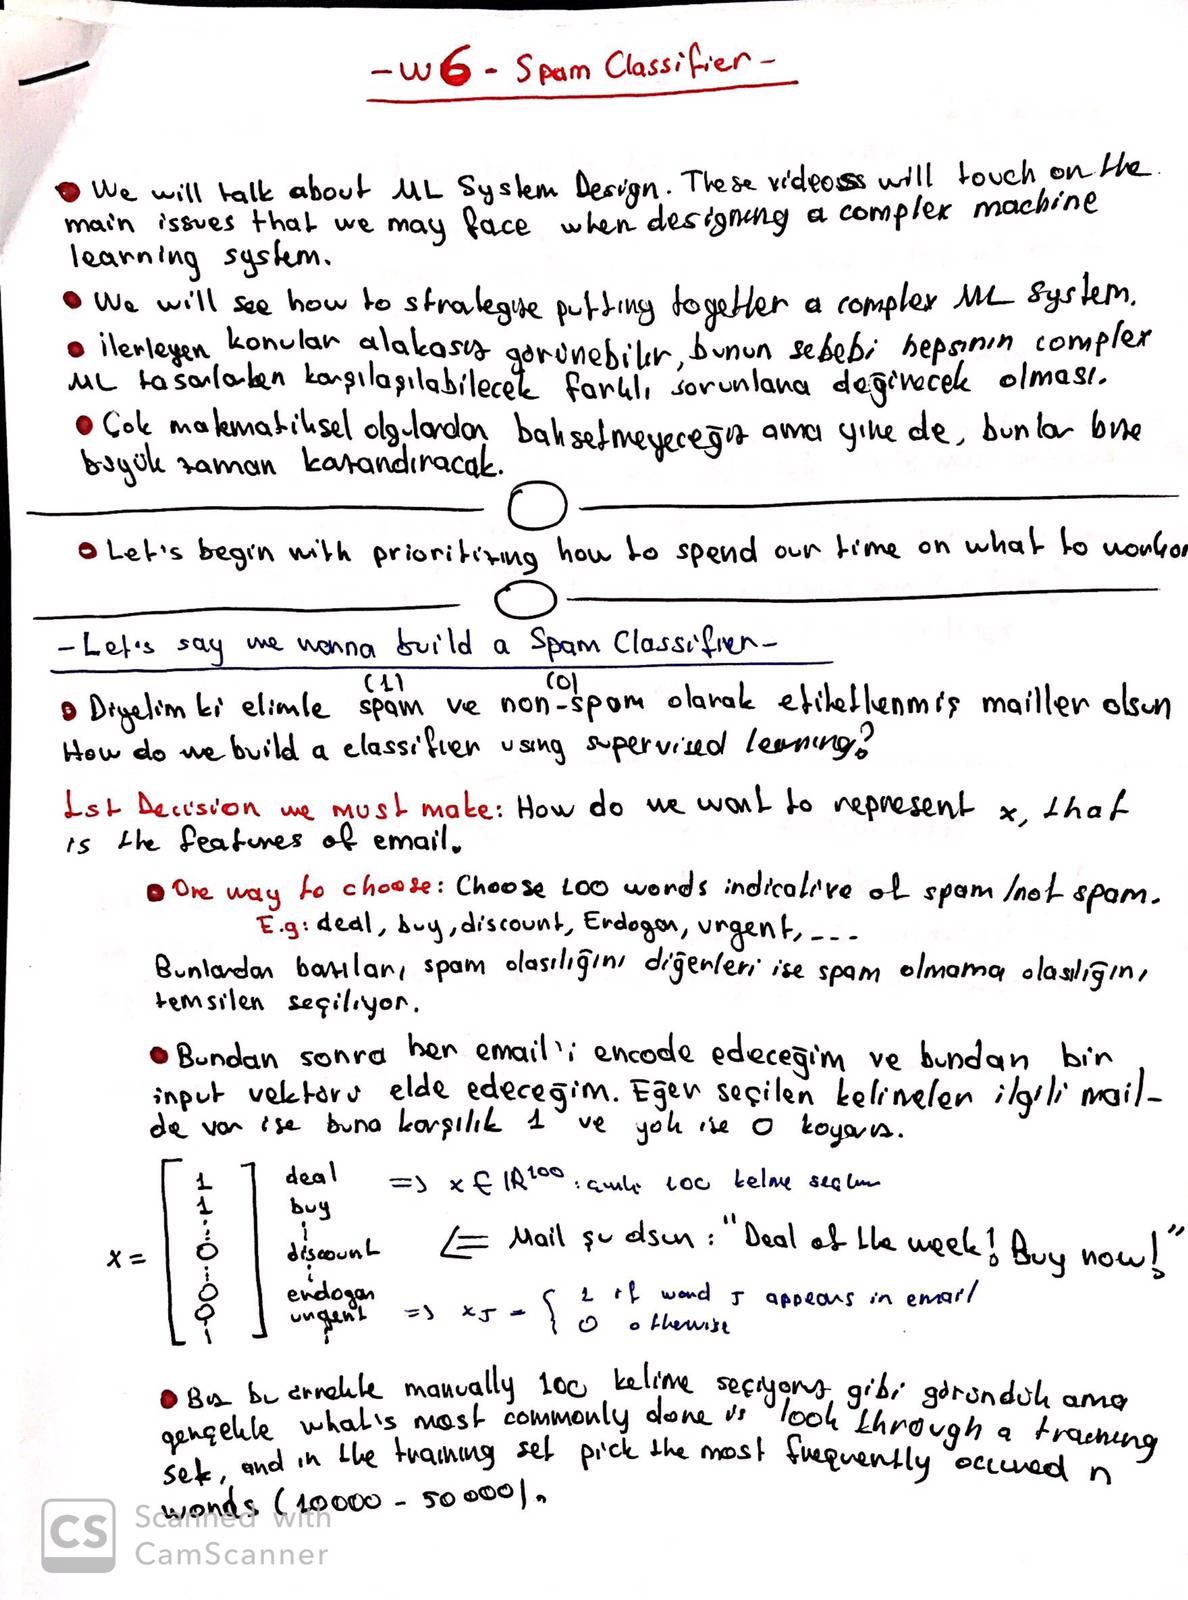 - W6 - Spam Classifier -
• We will talk about ML System Design. These videos will touch on the
main issues that we may face when designing a complex machine
learning system.
• We will see how to strategise putting together a complex ML system.
• ilerleyen konular alakasız görünebilir, bunun sebebi hepsinin complex
ML tasarlarken karşılaşılabilecek farklı sorunlara değinecek olması.
• Çok matematiksel olgulardan bahsetmeyeceğiz ama yine de, bunlar bize
büyük zaman kazandıracak.
• Let's begin with prioritizing how to spend our time on what to work on
- Let's say we wanna build a Spam Classifier -
(1) (0)
• Diyelim ki elimle spam ve non-spam olarak etiketlenmiş mailler olsun
How do we build a classifier using supervised learning?
1st Decision we must make: How do we want to represent x, that
is the features of email.
• One way to choose: Choose 100 words indicative of spam/not spam.
E.g: deal, buy, discount, Erdogan, urgent, ---
Bunlardan bazıları spam olasılığını diğerleri ise spam olmama olasılığını
temsilen seçiliyor.
• Bundan sonra her email'i encode edeceğim ve bundan bir
input vektörü elde edeceğim. Eğer seçilen kelimeler ilgili mail-
de var ise buna karşılık 1 ve yok ise 0 koyarız.
1 deal => x ∈ IR^100 : çünkü 100 kelime seçtim
1 buy
x = 0 discount <= Mail şu olsun : "Deal of the week! Buy now!"
0 erdogan
0 urgent => xJ = { 1 if word J appears in email
0 otherwise
• Biz bu örnekte manually 100 kelime seçiyoruz gibi göründük ama
gerçekte what's most commonly done is look through a training
set, and in the training set pick the most frequently occured n
words (10000 - 50000).
CS Scanned with
CamScanner